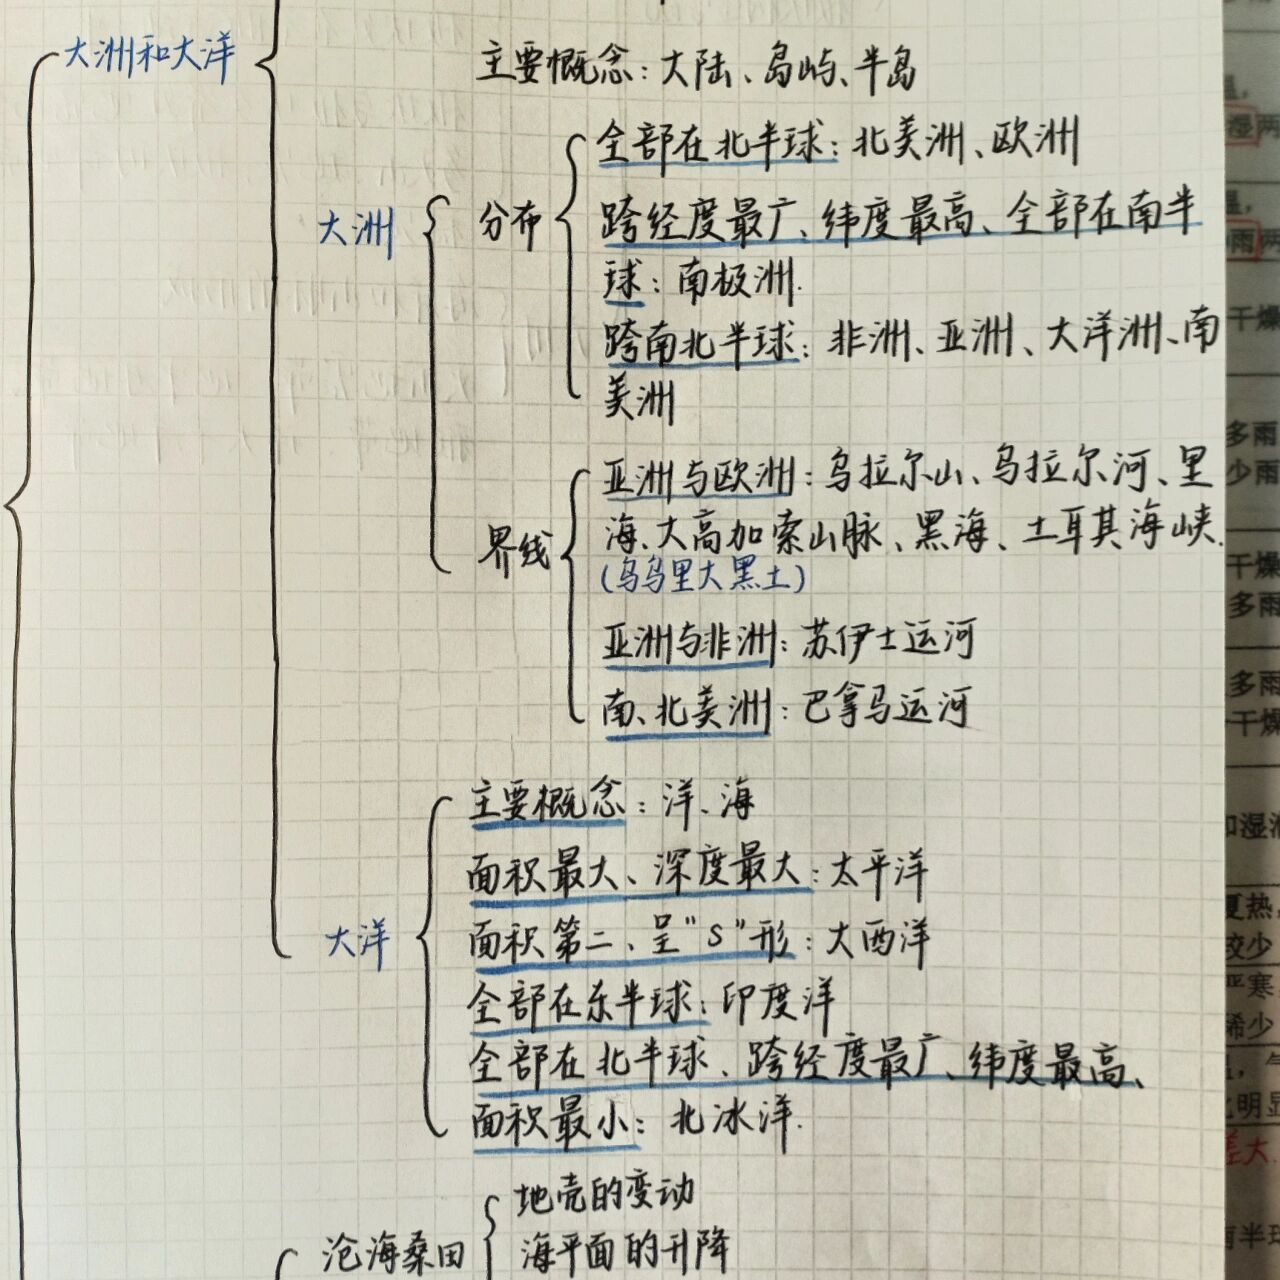 大洲和大洋
主要概念：大陆、岛屿、半岛
大洲
分布
全部在北半球：北美洲、欧洲
跨经度最广、纬度最高、全部在南半
球：南极洲.
跨南北半球：非洲、亚洲、大洋洲、南
美洲
界线
亚洲与欧洲：乌拉尔山、乌拉尔河、里
海、大高加索山脉、黑海、土耳其海峡.
(乌乌里大黑土)
亚洲与非洲：苏伊士运河
南、北美洲：巴拿马运河
大洋
主要概念：洋、海
面积最大、深度最大：太平洋
面积第二、呈"S"形：大西洋
全部在东半球：印度洋
全部在北半球、跨经度最广、纬度最高、
面积最小：北冰洋.
沧海桑田
地壳的变动
海平面的升降
温，
湿两
温，
雨两
干燥
多雨
少雨
干燥
多雨
多雨
干燥
和湿润
夏热，
较少
严寒
稀少
明显
差大.
南半球